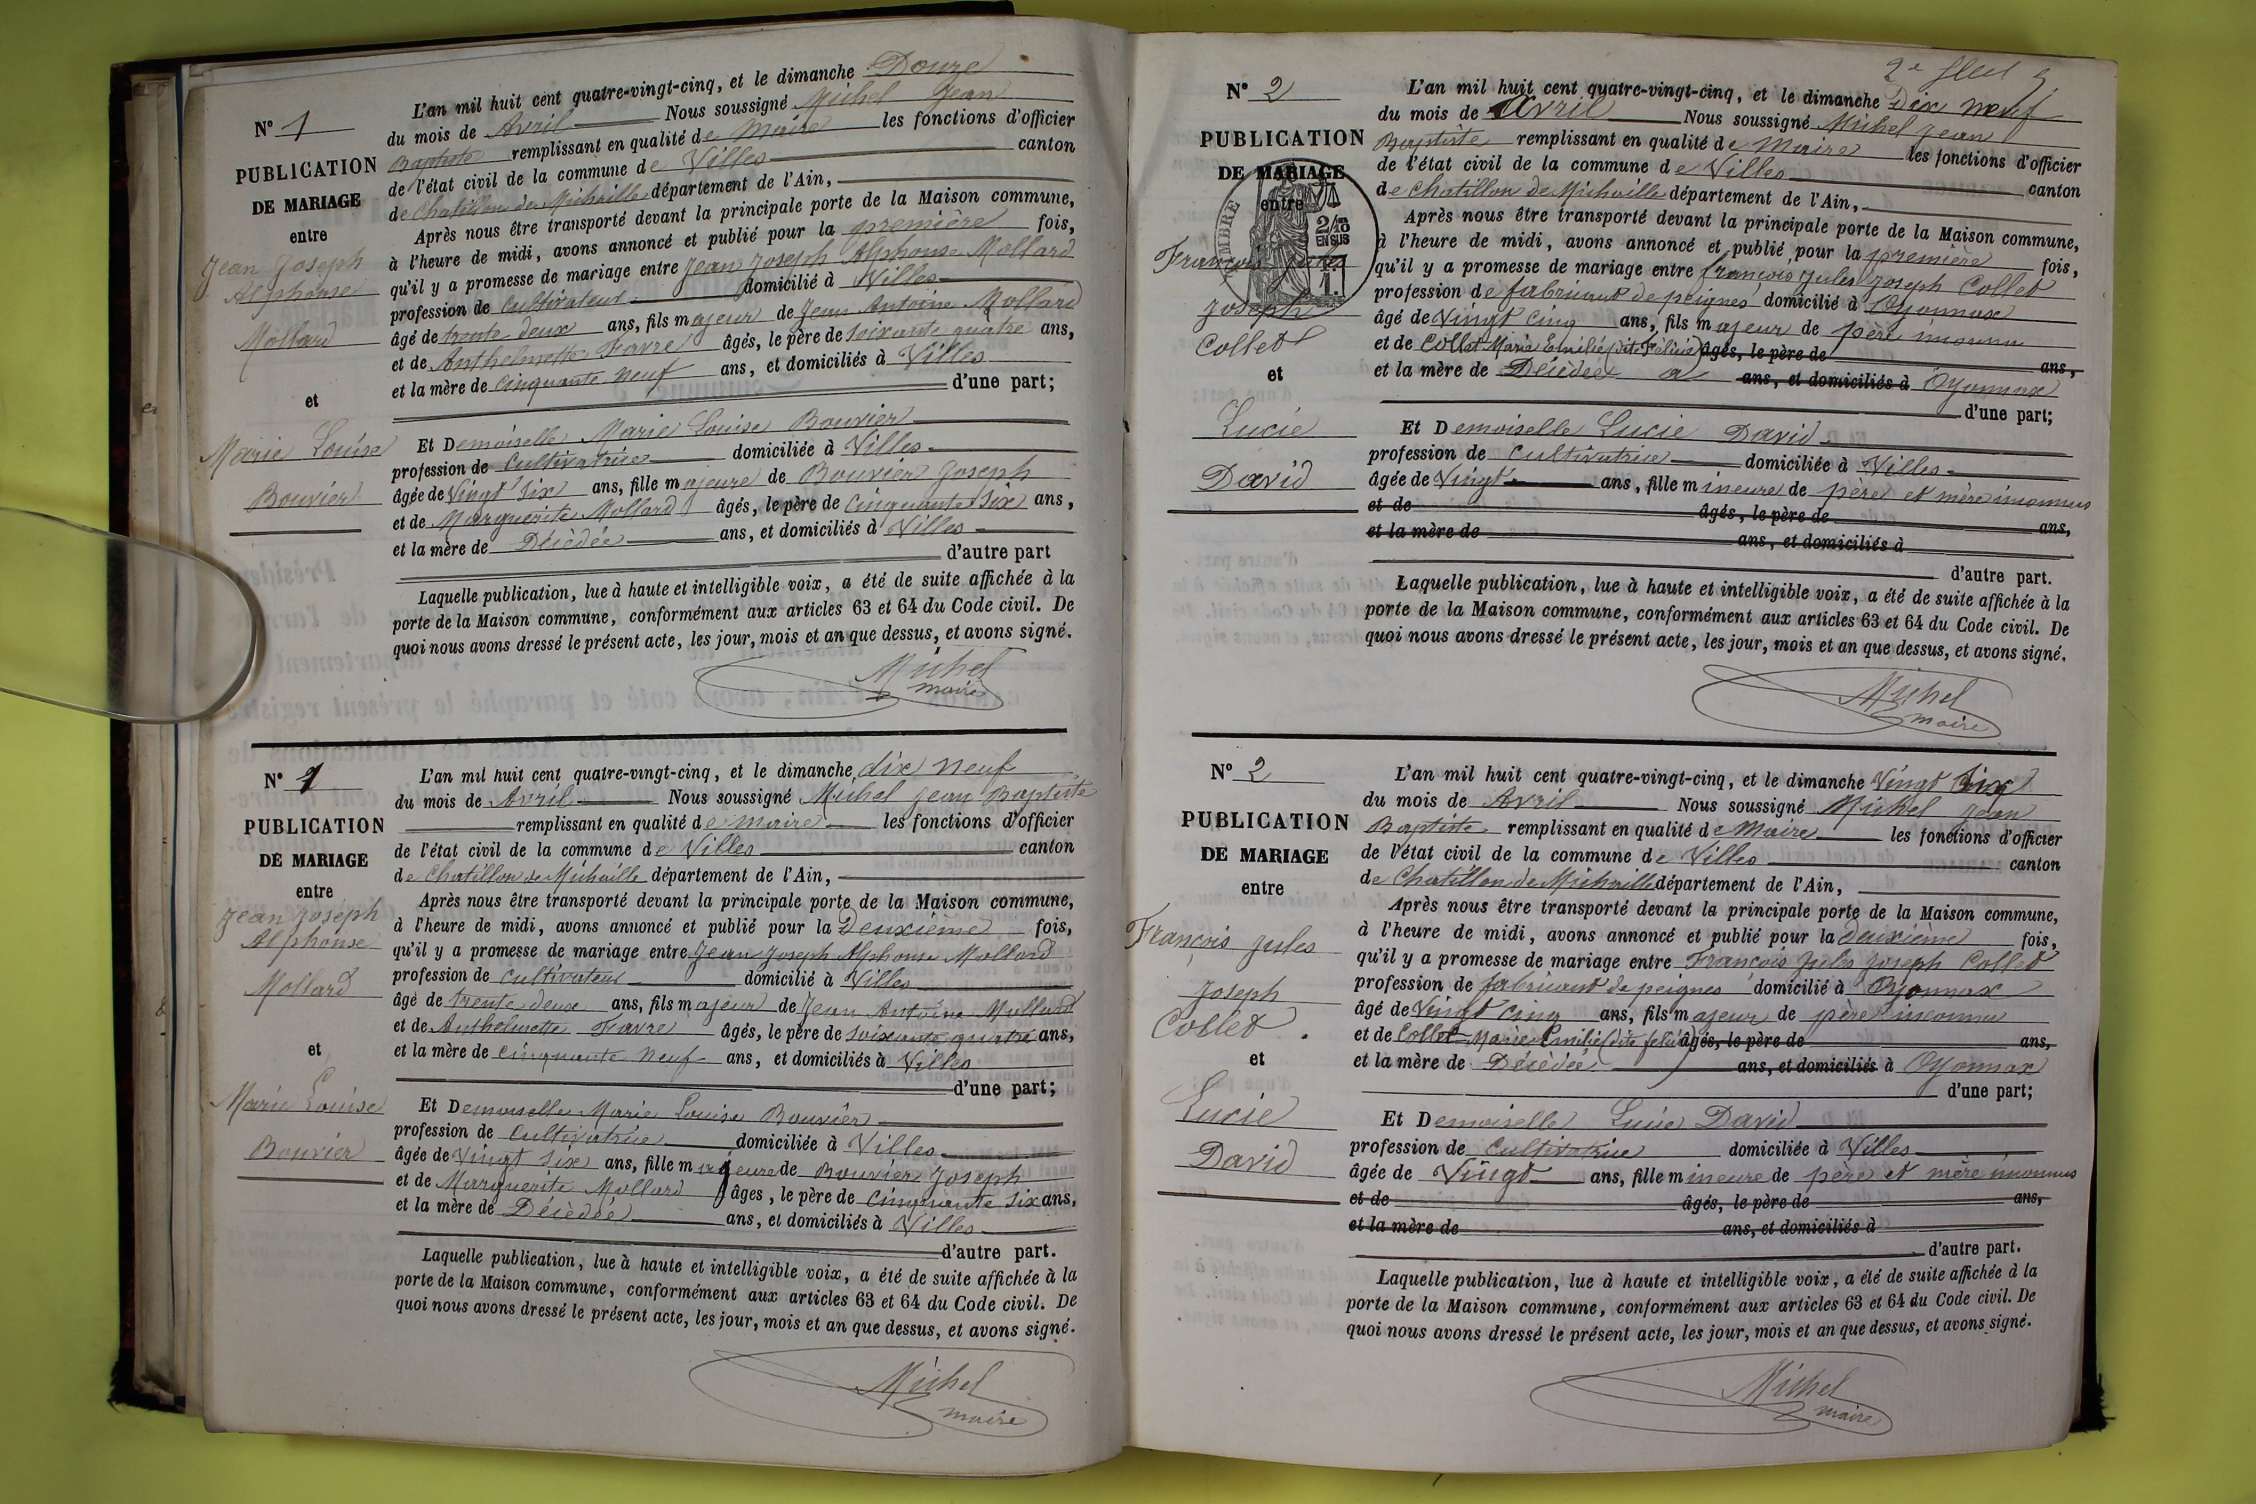 N° 1
PUBLICATION
DE MARIAGE
entre
Jean Joseph
Alphonse
Mollard
et
Marie Louise
Bouvier
L'an mil huit cent quatre-vingt-cinq, et le dimanche Douze
du mois de Avril Nous soussigné Michel Jean
Baptiste remplissant en qualité de Maire les fonctions d'officier
de l'état civil de la commune de Villes canton
de Chatillon de Michaille département de l'Ain,
Après nous être transporté devant la principale porte de la Maison commune,
à l'heure de midi, avons annoncé et publié pour la première fois,
qu'il y a promesse de mariage entre Jean Joseph Alphonse Mollard
profession de Cultivateur domicilié à Villes
âgé de trente deux ans, fils majeur de Jean Antoine Mollard
et de Anthelmette Favre âgés, le père de soixante quatre ans,
et la mère de cinquante neuf ans, et domiciliés à Villes
d'une part;
Et Demoiselle Marie Louise Bouvier
profession de Cultivatrice domiciliée à Villes
âgée de Vingt six ans, fille majeure de Bouvier Joseph
et de Marguerite Mollard âgés, le père de Cinquante six ans,
et la mère de Décédée ans, et domiciliés à Villes
d'autre part
Laquelle publication, lue à haute et intelligible voix, a été de suite affichée à la
porte de la Maison commune, conformément aux articles 63 et 64 du Code civil. De
quoi nous avons dressé le présent acte, les jour, mois et an que dessus, et avons signé.
Michel
maire
N° 1
PUBLICATION
DE MARIAGE
entre
Jean Joseph
Alphonse
Mollard
et
Marie Louise
Bouvier
L'an mil huit cent quatre-vingt-cinq, et le dimanche dix neuf
du mois de Avril Nous soussigné Michel Jean Baptiste
remplissant en qualité de maire les fonctions d'officier
de l'état civil de la commune de Villes canton
de Chatillon de Michaille département de l'Ain,
Après nous être transporté devant la principale porte de la Maison commune,
à l'heure de midi, avons annoncé et publié pour la Deuxième fois,
qu'il y a promesse de mariage entre Jean Joseph Alphonse Mollard
profession de Cultivateur domicilié à Villes
âgé de trente deux ans, fils majeur de Jean Antoine Mollard
et de Anthelmette Favre âgés, le père de soixante quatre ans,
et la mère de cinquante neuf ans, et domiciliés à Villes
d'une part;
Et Demoiselle Marie Louise Bouvier
profession de Cultivatrice domiciliée à Villes
âgée de Vingt six ans, fille majeure de Bouvier Joseph
et de Marguerite Mollard âges, le père de Cinquante six ans,
et la mère de Décédée ans, et domiciliés à Villes
d'autre part.
Laquelle publication, lue à haute et intelligible voix, a été de suite affichée à la
porte de la Maison commune, conformément aux articles 63 et 64 du Code civil. De
quoi nous avons dressé le présent acte, les jour, mois et an que dessus, et avons signé.
Michel
maire
2e
N° 2
PUBLICATION
DE MARIAGE
entre
François Jules
Joseph
Collet
et
Lucie
David
TIMBRE
2/10
EN SUS
L'an mil huit cent quatre-vingt-cinq, et le dimanche Dix neuf
du mois de Avril Nous soussigné Michel Jean
Baptiste remplissant en qualité de Maire les fonctions d'officier
de l'état civil de la commune de Villes
de Chatillon de Michaille département de l'Ain, canton
Après nous être transporté devant la principale porte de la Maison commune,
à l'heure de midi, avons annoncé et publié pour la première fois,
qu'il y a promesse de mariage entre François Jules Joseph Collet
profession de fabricant de peignes domicilié à Oyonnax
âgé de Vingt cinq ans, fils majeur de père inconnu
et de Collet Marie Emilie (dite Félicie) âgés, le père de ans,
et la mère de Décédée a ans, et domiciliés à Oyonnax
d'une part;
Et Demoiselle Lucie David
profession de Cultivatrice domiciliée à Villes
âgée de Vingt ans, fille mineure de père et mère inconnus
et de âgés, le père de ans,
et la mère de ans, et domiciliés à
d'autre part.
Laquelle publication, lue à haute et intelligible voix, a été de suite affichée à la
porte de la Maison commune, conformément aux articles 63 et 64 du Code civil. De
quoi nous avons dressé le présent acte, les jour, mois et an que dessus, et avons signé.
Michel
maire
N° 2
PUBLICATION
DE MARIAGE
entre
François Jules
Joseph
Collet
et
Lucie
David
L'an mil huit cent quatre-vingt-cinq, et le dimanche Vingt Six
du mois de Avril Nous soussigné Michel Jean
Baptiste remplissant en qualité de Maire les fonctions d'officier
de l'état civil de la commune de Villes canton
de Chatillon de Michaille département de l'Ain,
Après nous être transporté devant la principale porte de la Maison commune,
à l'heure de midi, avons annoncé et publié pour la deuxième fois,
qu'il y a promesse de mariage entre François Jules Joseph Collet
profession de fabricant de peignes domicilié à Oyonnax
âgé de Vingt cinq ans, fils majeur de père inconnu
et de Collet Marie Emilie (dite âgés, le père de ans,
et la mère de Décédée ans, et domiciliés à Oyonnax
d'une part;
Et Demoiselle Lucie David
profession de Cultivatrice domiciliée à Villes
âgée de Vingt ans, fille mineure de père et mère inconnus
et de âgés, le père de ans,
et la mère de ans, et domiciliés à
d'autre part.
Laquelle publication, lue à haute et intelligible voix, a été de suite affichée à la
porte de la Maison commune, conformément aux articles 63 et 64 du Code civil. De
quoi nous avons dressé le présent acte, les jour, mois et an que dessus, et avons signé.
Michel
maire